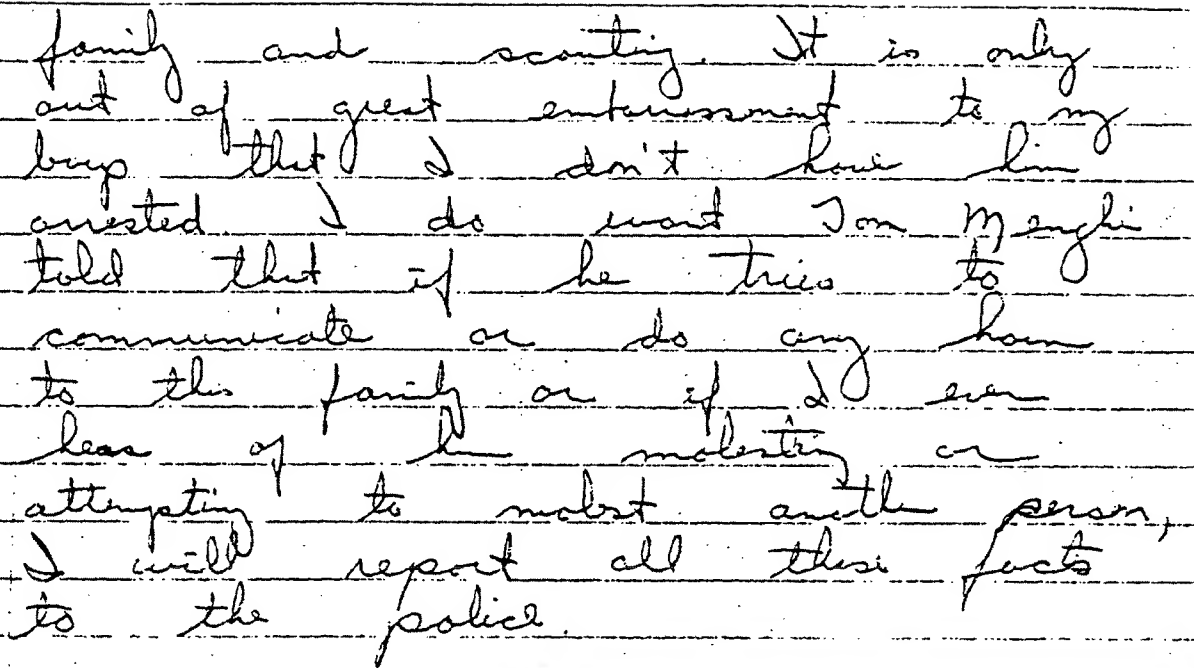 family and scouting. It is only
out of great embarrassment to my
boys that I don't have him
arrested. I do want Tom Menghi
told that if he tries to
communicate or do any harm
to this family or if I ever
hear of him molesting or
attempting to molest another person,
I will report all these facts
to the police.